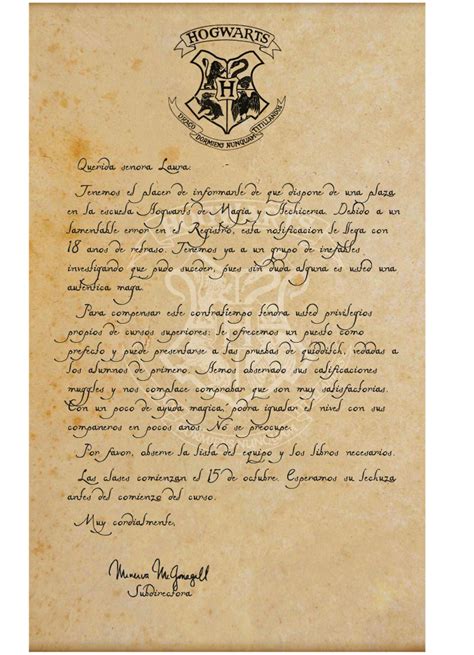 HOGWARTS
H
DRACO DORMIENS NUNQUAM TITILLANDUS
Querida senora Laura:
Tenemos el placer de informarle de que dispone de una plaza
en la escuela Hogwarts de Magia y Hechiceria. Debido a un
lamentable error en el Registro, esta notificacion le llega con
18 anos de retraso. Tenemos ya a un grupo de inefables
investigando que pudo suceder, pues sin duda alguna es usted una
autentica maga.
Para compensar este contratiempo tendra usted privilegios
propios de cursos superiores: le ofrecemos un puesto como
prefecto y puede presentarse a las pruebas de quidditch, vedadas a
los alumnos de primero. Hemos observado sus calificaciones
muggles y nos complace comprobar que son muy satisfactorias.
Con un poco de ayuda magica, podra igualar el nivel con sus
companeros en pocos anos. No se preocupe.
Por favor, observe la lista del equipo y los libros necesarios.
Las clases comienzan el 15 de octubre. Esperamos su lechuza
antes del comienzo del curso.
Muy cordialmente,
Minerva McGonagall
Subdirectora